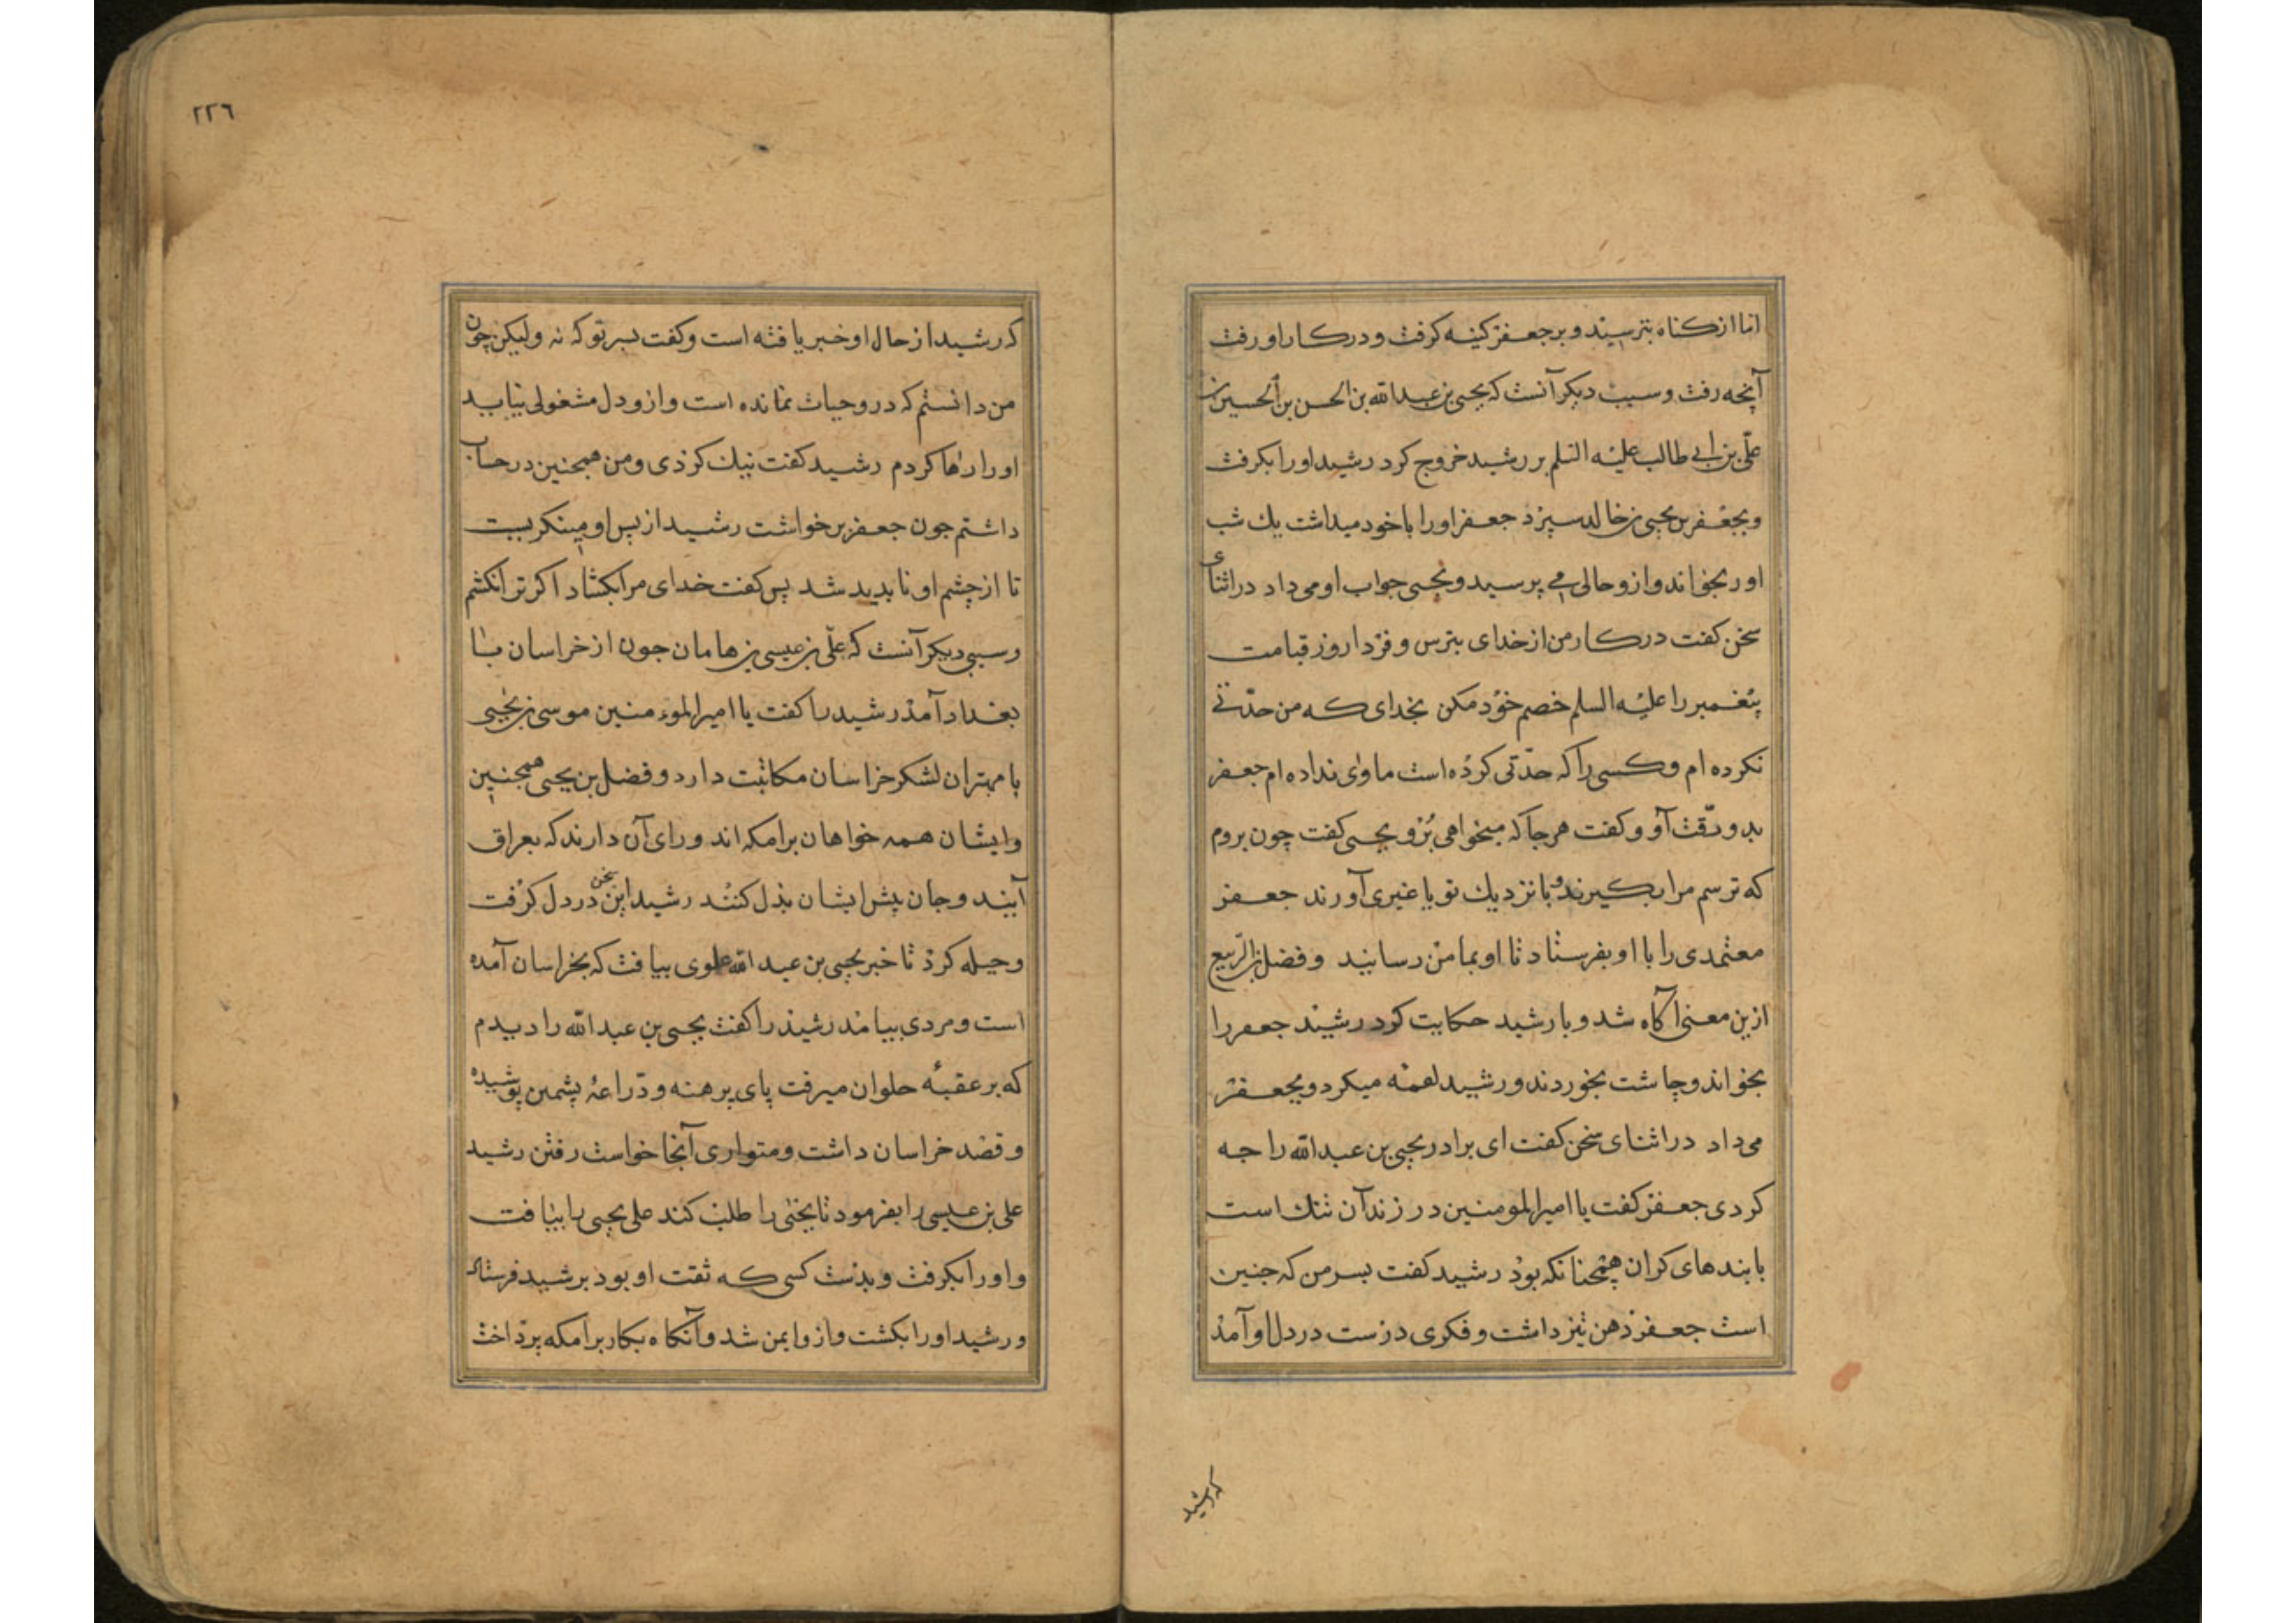 اما از کناه بترسیند و بر جعفر کینه کرفت و در کار او رفت
آنچه رفت و سبب دیکر آنست که یحیی بن عبدالله بن الحسن بن الحسین بن
علی بن ابی طالب علیه السلم بر رشید خروج کرد رشید اورا بکرفت
و بجعفر بن یحیی بن خالد سپرد جعفر اورا با خود میداشت یك شب
اورا بخواند و ازو حالی می پرسید و یحیی جواب او می داد در اثنای
سخن کفت در کار من از خدای بترس و فردا روز قیامت
پیغمبر را علیه السلم خصم خود مکن بخدای که من حدثی
نکرده ام و کسی را که حدثی کرده است ماوای نداده ام جعفر
بدو رقت آو و کفت هر جا که میخواهی برو یحیی کفت چون بروم
که ترسم مرا بکیرند و با نزدیك تو یا غیری آورند جعفر
معتمدی را با او بفرستاد تا او بمامن رسانید و فضل بن الربیع
ازین معنی آکاه شد و با رشید حکایت کرد رشید جعفر را
بخواند و چاشت بخوردند و رشید لقمه میکرد و بجعفر
می داد در اثنای سخن کفت ای برادر یحیی بن عبدالله را جه
کردی جعفر کفت یا امیرالمومنین در زندان تنك است
با بندهای کران همچنانکه بود رشید کفت بسر من که جنین
است جعفر ذهن تیز داشت و فکری درست در دل او آمد
که رشید
۲۲۶
که رشید از حال او خبر یافته است و کفت بسر تو که نه ولیکن چون
من دانستم که درو حیات نمانده است و ازو دل مشغولی نیاید
اورا رها کردم رشید کفت نیك کردی و من همجنین در حساب
داشتم جون جعفر برخواست رشید از پس او مینکریست
تا از چشم او ناپدید شد پس کفت خدای مرا بکشاد اکر ترا نکشم
و سببی دیکر آنست که علی بن عیسی بن هامان جون از خراسان با
بغداد آمد رشید را کفت یا امیر الموءمنین موسی بن یحیی
با مهتران لشکر خراسان مکاتبت دارد و فضل بن یحیی همجنین
و ایشان همه خواهان برامکه اند و رای آن دارند که بعراق
آیند و جان پیش ایشان بذل کنند رشید این سخن در دل کرفت
و حیله کرد تا خبر یحیی بن عبد الله علوی بیافت که بخراسان آمده
است و مردی بیامد رشید را کفت یحیی بن عبد الله را دیدم
که بر عقبهٔ حلوان میرفت پای برهنه و دراعهٔ پشمین پوشیده
و قصد خراسان داشت و متواری آنجا خواست رفتن رشید
علی بن عیسی را بفرمود تا یحیی را طلب کند علی یحیی را بیافت
و اورا بکرفت و بدست کسی که ثقت او بود بر رشید فرستاد
و رشید اورا بکشت و ازو ایمن شد و آنکاه بکار برامکه پرداخت